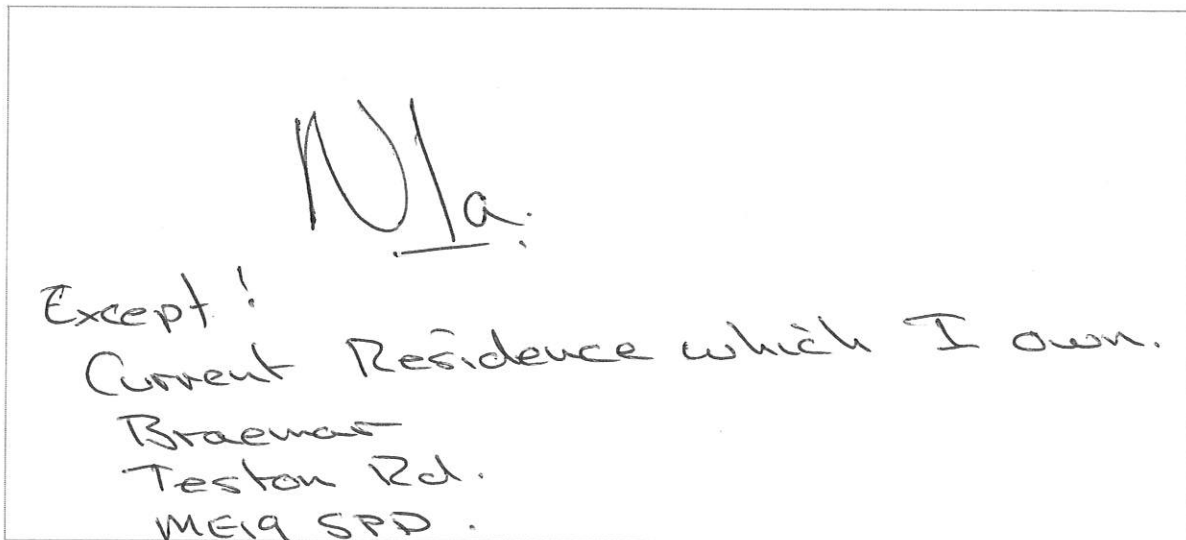 N/a.
Except!
Current Residence which I own.
Braemar
Teston Rd.
ME19 5PD.